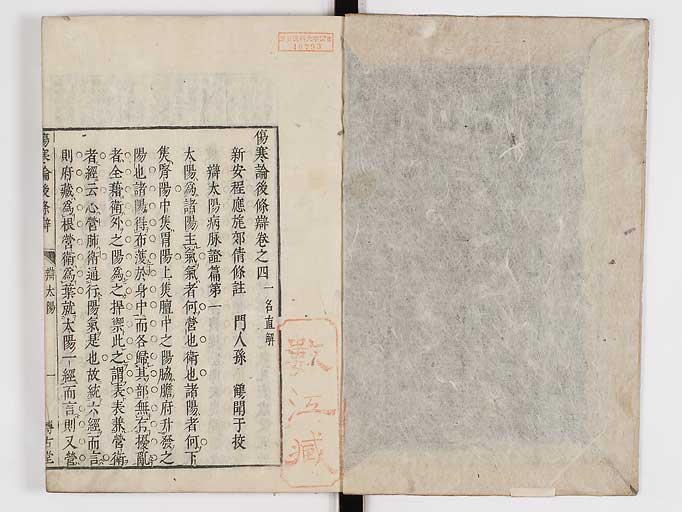 傷寒論後條辯卷之四 一名直解
新安程應旄郊倩條註 門人孫 鶴開于挍
辯太陽病脉證篇第一
太陽爲諸陽主氣氣者何營也衛也諸陽者何下
焦腎陽中焦胃陽上焦膻中之陽脇膽府升發之
陽也諸陽徃布濩於身中而各歸其部無有擾亂
者全藉衛外之陽爲之捍禦此之謂表表兼營衛
者經云心營肺衛通行陽氣是也故統六經而言
則府藏爲根營衛爲葉就太陽一經而言則又營
傷寒論後條辯 辯太陽 一
16793
江藏